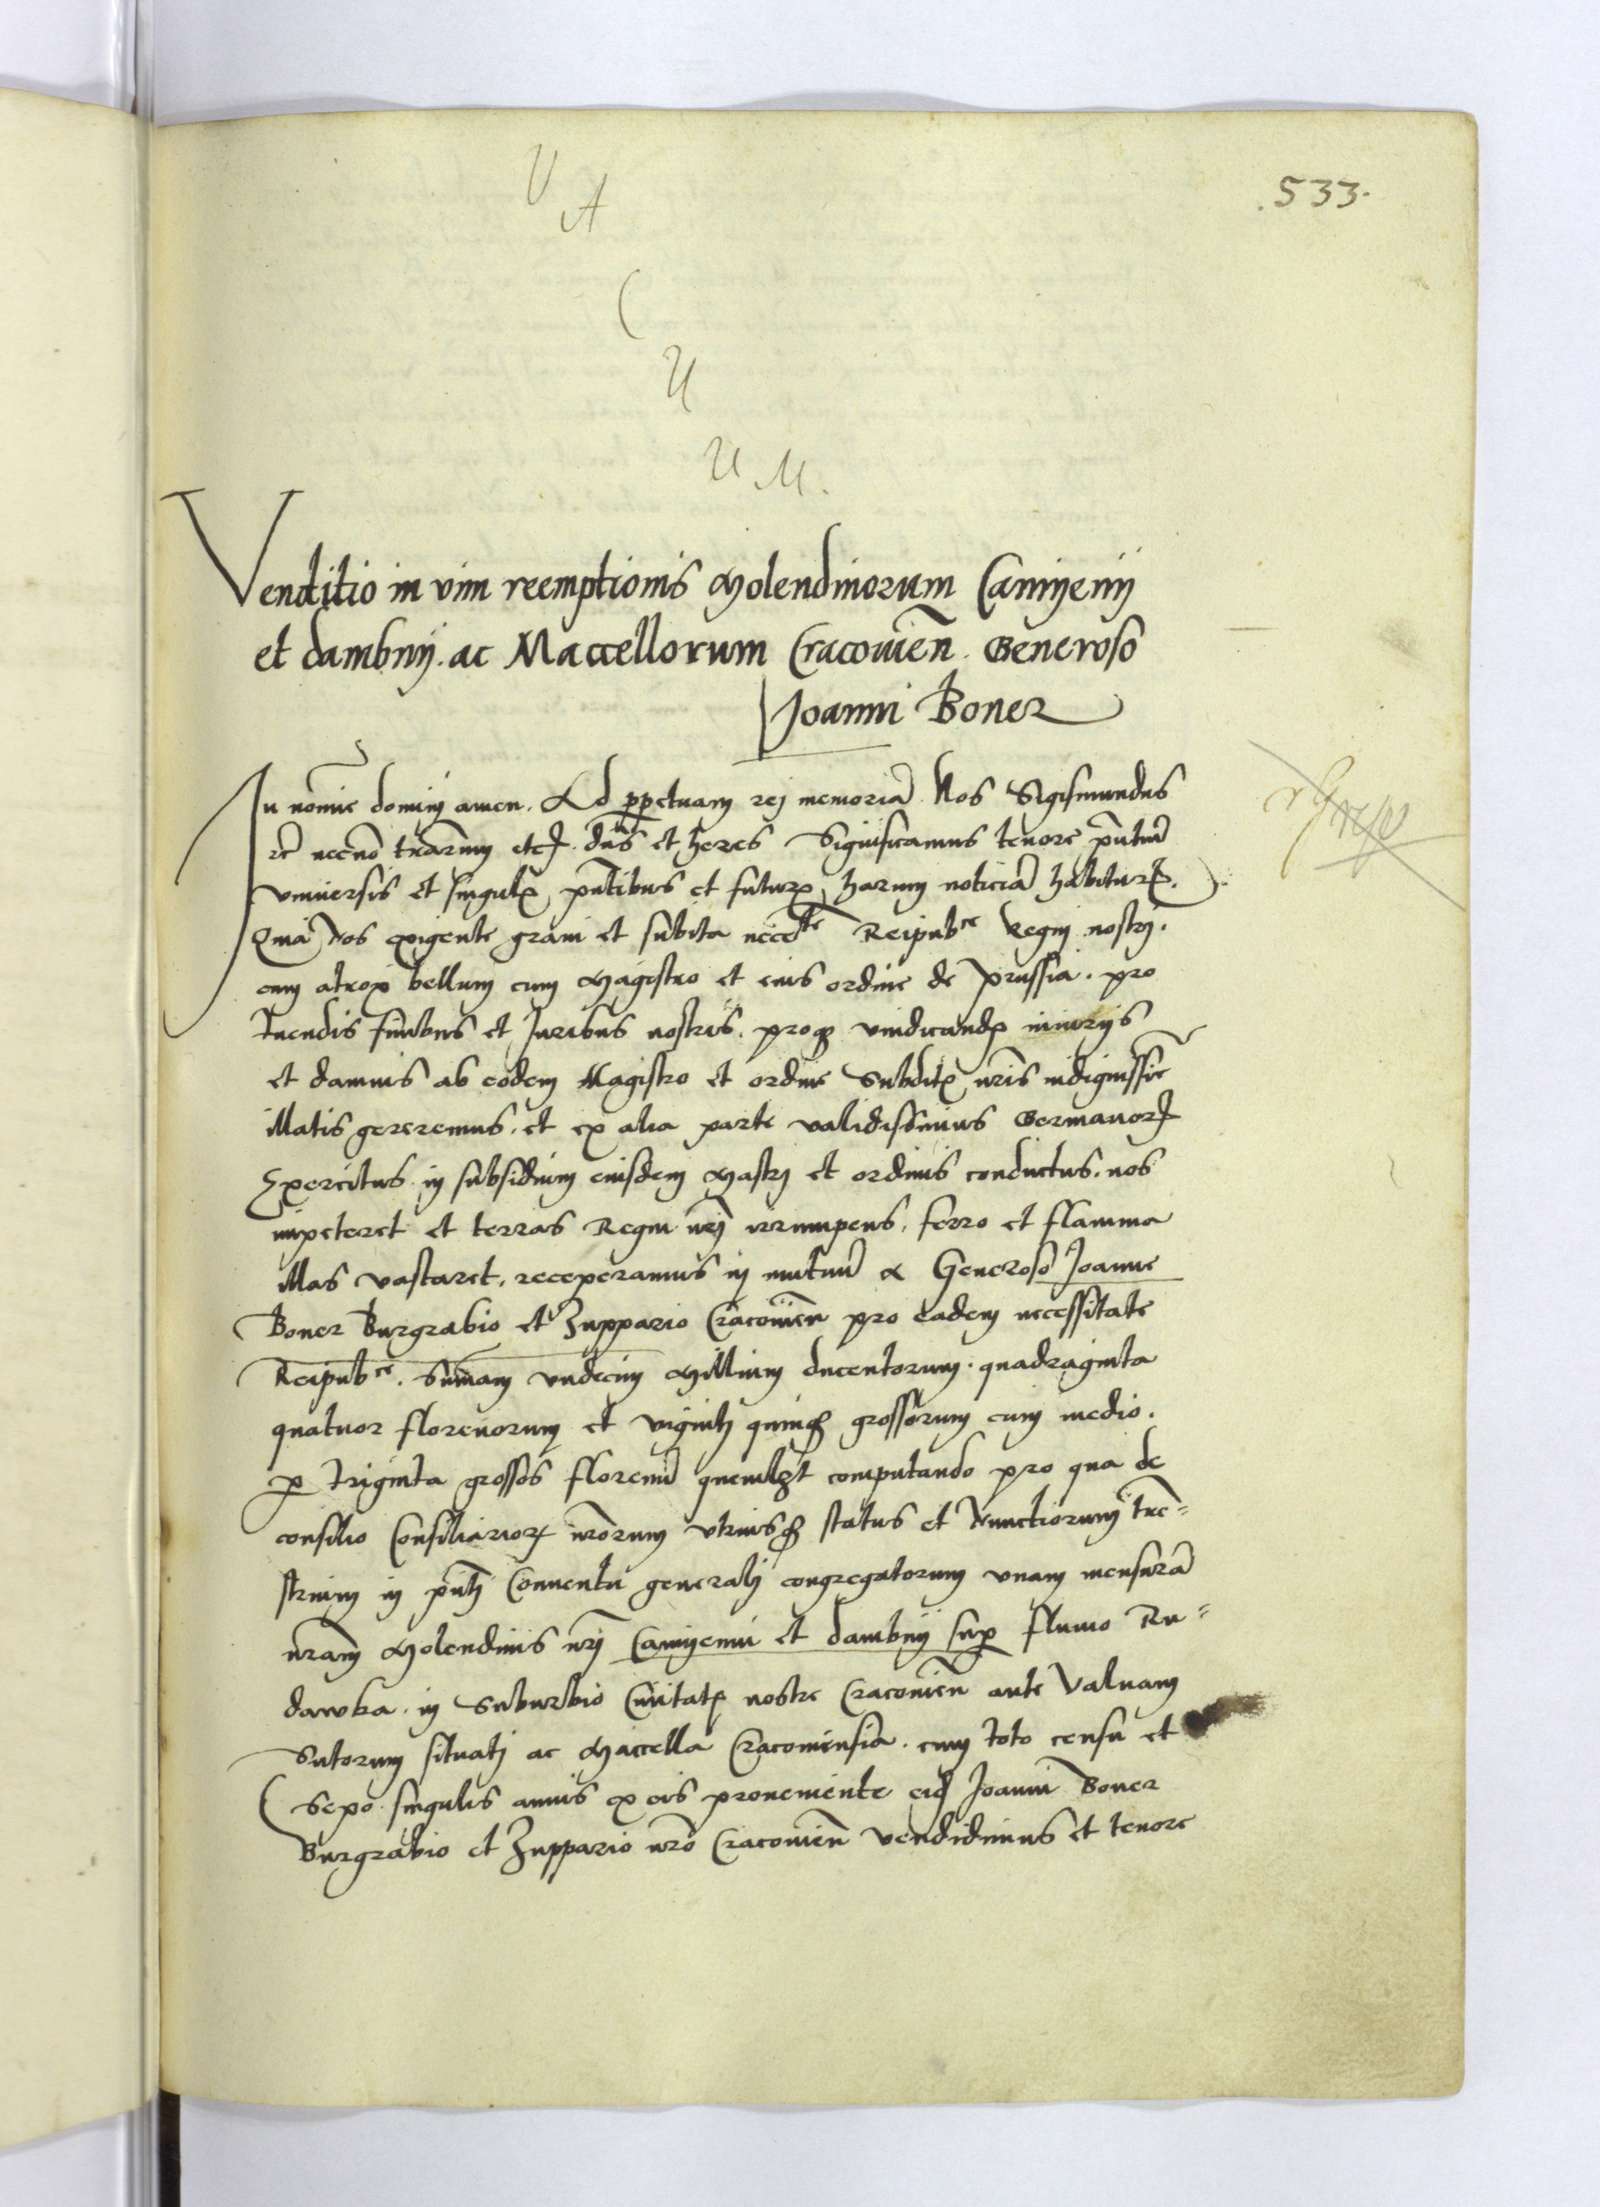 .533.
V
A
C
U
U M.
Venditio in vim reemptionis Molendinorum Camÿenÿ
et dambnÿ. ac Maccellorum Cracovieñ. Generoso
Joanni Boner
In nomíe dominj amen. Ad ppetuam rej memoriã Nos Sigismundus
rc̃ necnõ trarum etc. dñs et heres Significamus tenore pñtiũ
universis et singulꝭ pñtibus et futurꝭ harum noticiã habiturꝭ.
Quia Nos exigente gravi et subita necc̃te Reipubce Regnj nostrj.
cum atrox bellum cum Magistro et eius ordine de Prussia. pro
tuendis finibus et Juribus nostris. proqꝫ vindicandꝭ iniurijs
et damnis ab eodem Magistro et ordine Subditꝭ nr̃is indignissiẽ
illatis gereremus. et ex alia parte validissimus Germanorꝝ
Exercitus in subsidium eiusdem Mastrj et ordinis conductus. nos
impeteret et terras Regni nr̃j irrumpens, ferro et flamma
illas vastaret, receperamus in mutuũ a Generoso Joanne
Boner Burgrabio et Zuppario Cracovieñ pro eadem necessitate
Reipubce. Sum̃am undecim Millium ducentorum. quadraginta
quatuor florenorum et vigintj quinqꝫ grossorum cum medio.
ꝑ triginta grossos florenũ quemlꝫt computando pro qua de
consilio Consiliariorꝝ nr̃orum utriusqꝫ status et Nunctiorum tr̃e=
strium in pñtj Conventu generalj congregatorum unam mensurã
nr̃am Molendinis nr̃j Camÿenii et dambnÿ suꝑ fluvio Ru=
dawka. in Suburbio Civitatꝭ nostre Cracovieñ ante Valvam
Sutorum situatj ac Maccella Cracoviensia. cum toto censu et
Sepo singulis annis ex eis proveniente eidẽ Joanni Boner
Burgrabio et Zuppario nr̃o Cracovieñ vendidimus et tenore